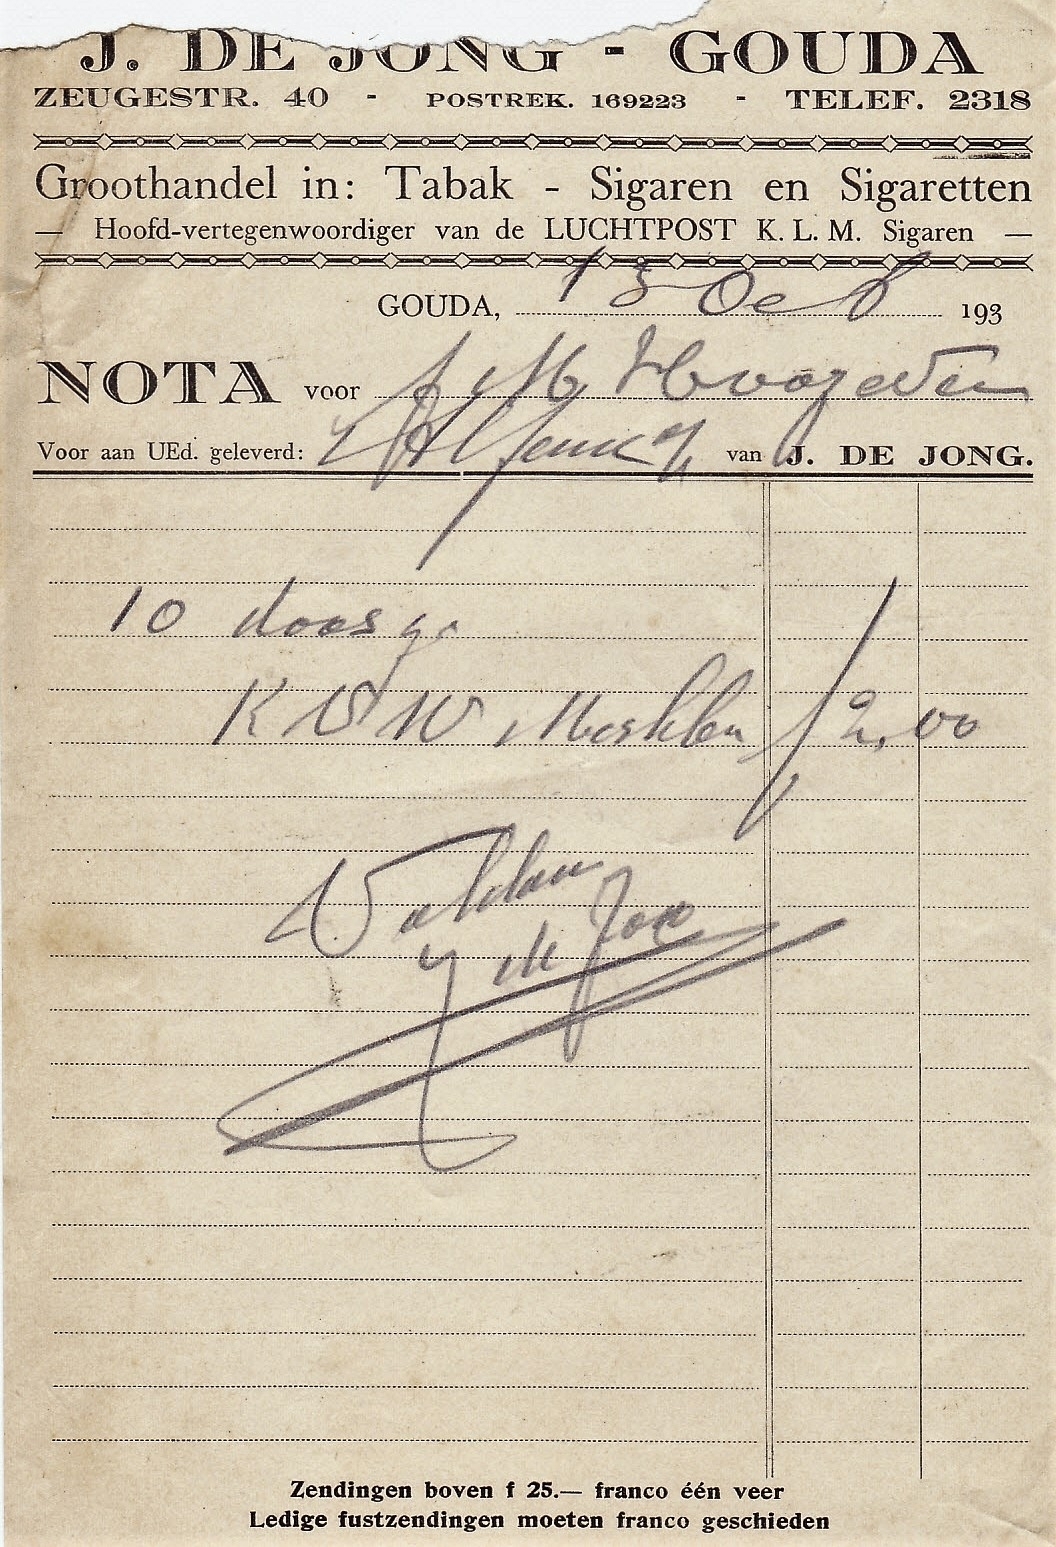 J. DE JONG - GOUDA
ZEUGESTR. 40 - POSTREK. 169223 - TELEF. 2318
Groothandel in: Tabak - Sigaren en Sigaretten
— Hoofd-vertegenwoordiger van de LUCHTPOST K. L. M. Sigaren —
GOUDA, 13 Oct 193
NOTA voor
Voor aan UEd. geleverd: van J. DE JONG.
10 doosjes
K W f 2.00
Voldaan
J de Jong
Zendingen boven f 25.— franco één veer
Ledige fustzendingen moeten franco geschieden